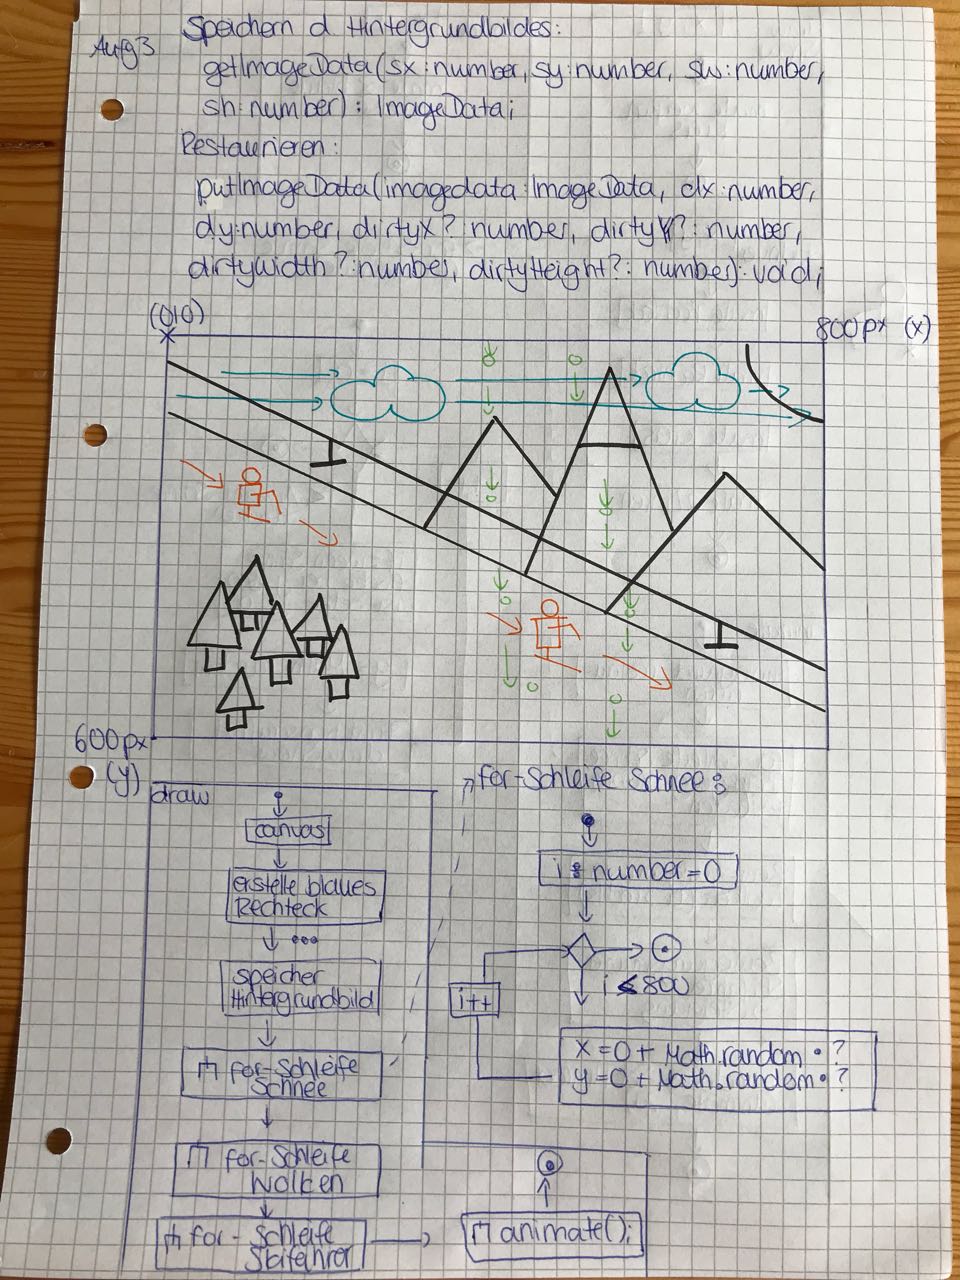 Aufg3
Speichern d Hintergrundbildes:
getImageData(sx:number, sy:number, sw:number,
sh:number): ImageData;
Restaurieren:
putImageData(imagedata:ImageData, dx:number,
dy:number, dirtyX?:number, dirtyY?:number,
dirtyWidth?:number, dirtyHeight?:number):void;
(0|0)
800px (x)
600px
(y)
draw
canvas
erstelle blaues
Rechteck
...
speicher
Hintergrundbild
for-Schleife
Schnee
for-Schleife
Wolken
for-Schleife
Skifahrer
animate();
for-Schleife Schnee:
i: number=0
i≤800
i++
x=0+Math.random•?
y=0+Math.random•?